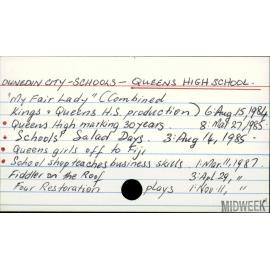 DUNEDIN CITY - SCHOOLS - QUEENS HIGH SCHOOL.
"My Fair Lady" (Combined
Kings & Queens H.S. production) 6: Aug 15, 1984
• Queens High marking 30 years. 8: Mar 27, 1985.
• Schools' Salad Days. 3: Aug 14, 1985.
• Queens girls off to Fiji
• School shop teaches business skills 1: Mar 11, 1987.
Fiddler on the Roof 3: Apl 29, "
Four Restoration plays 1: Nov 11, "
MIDWEEK